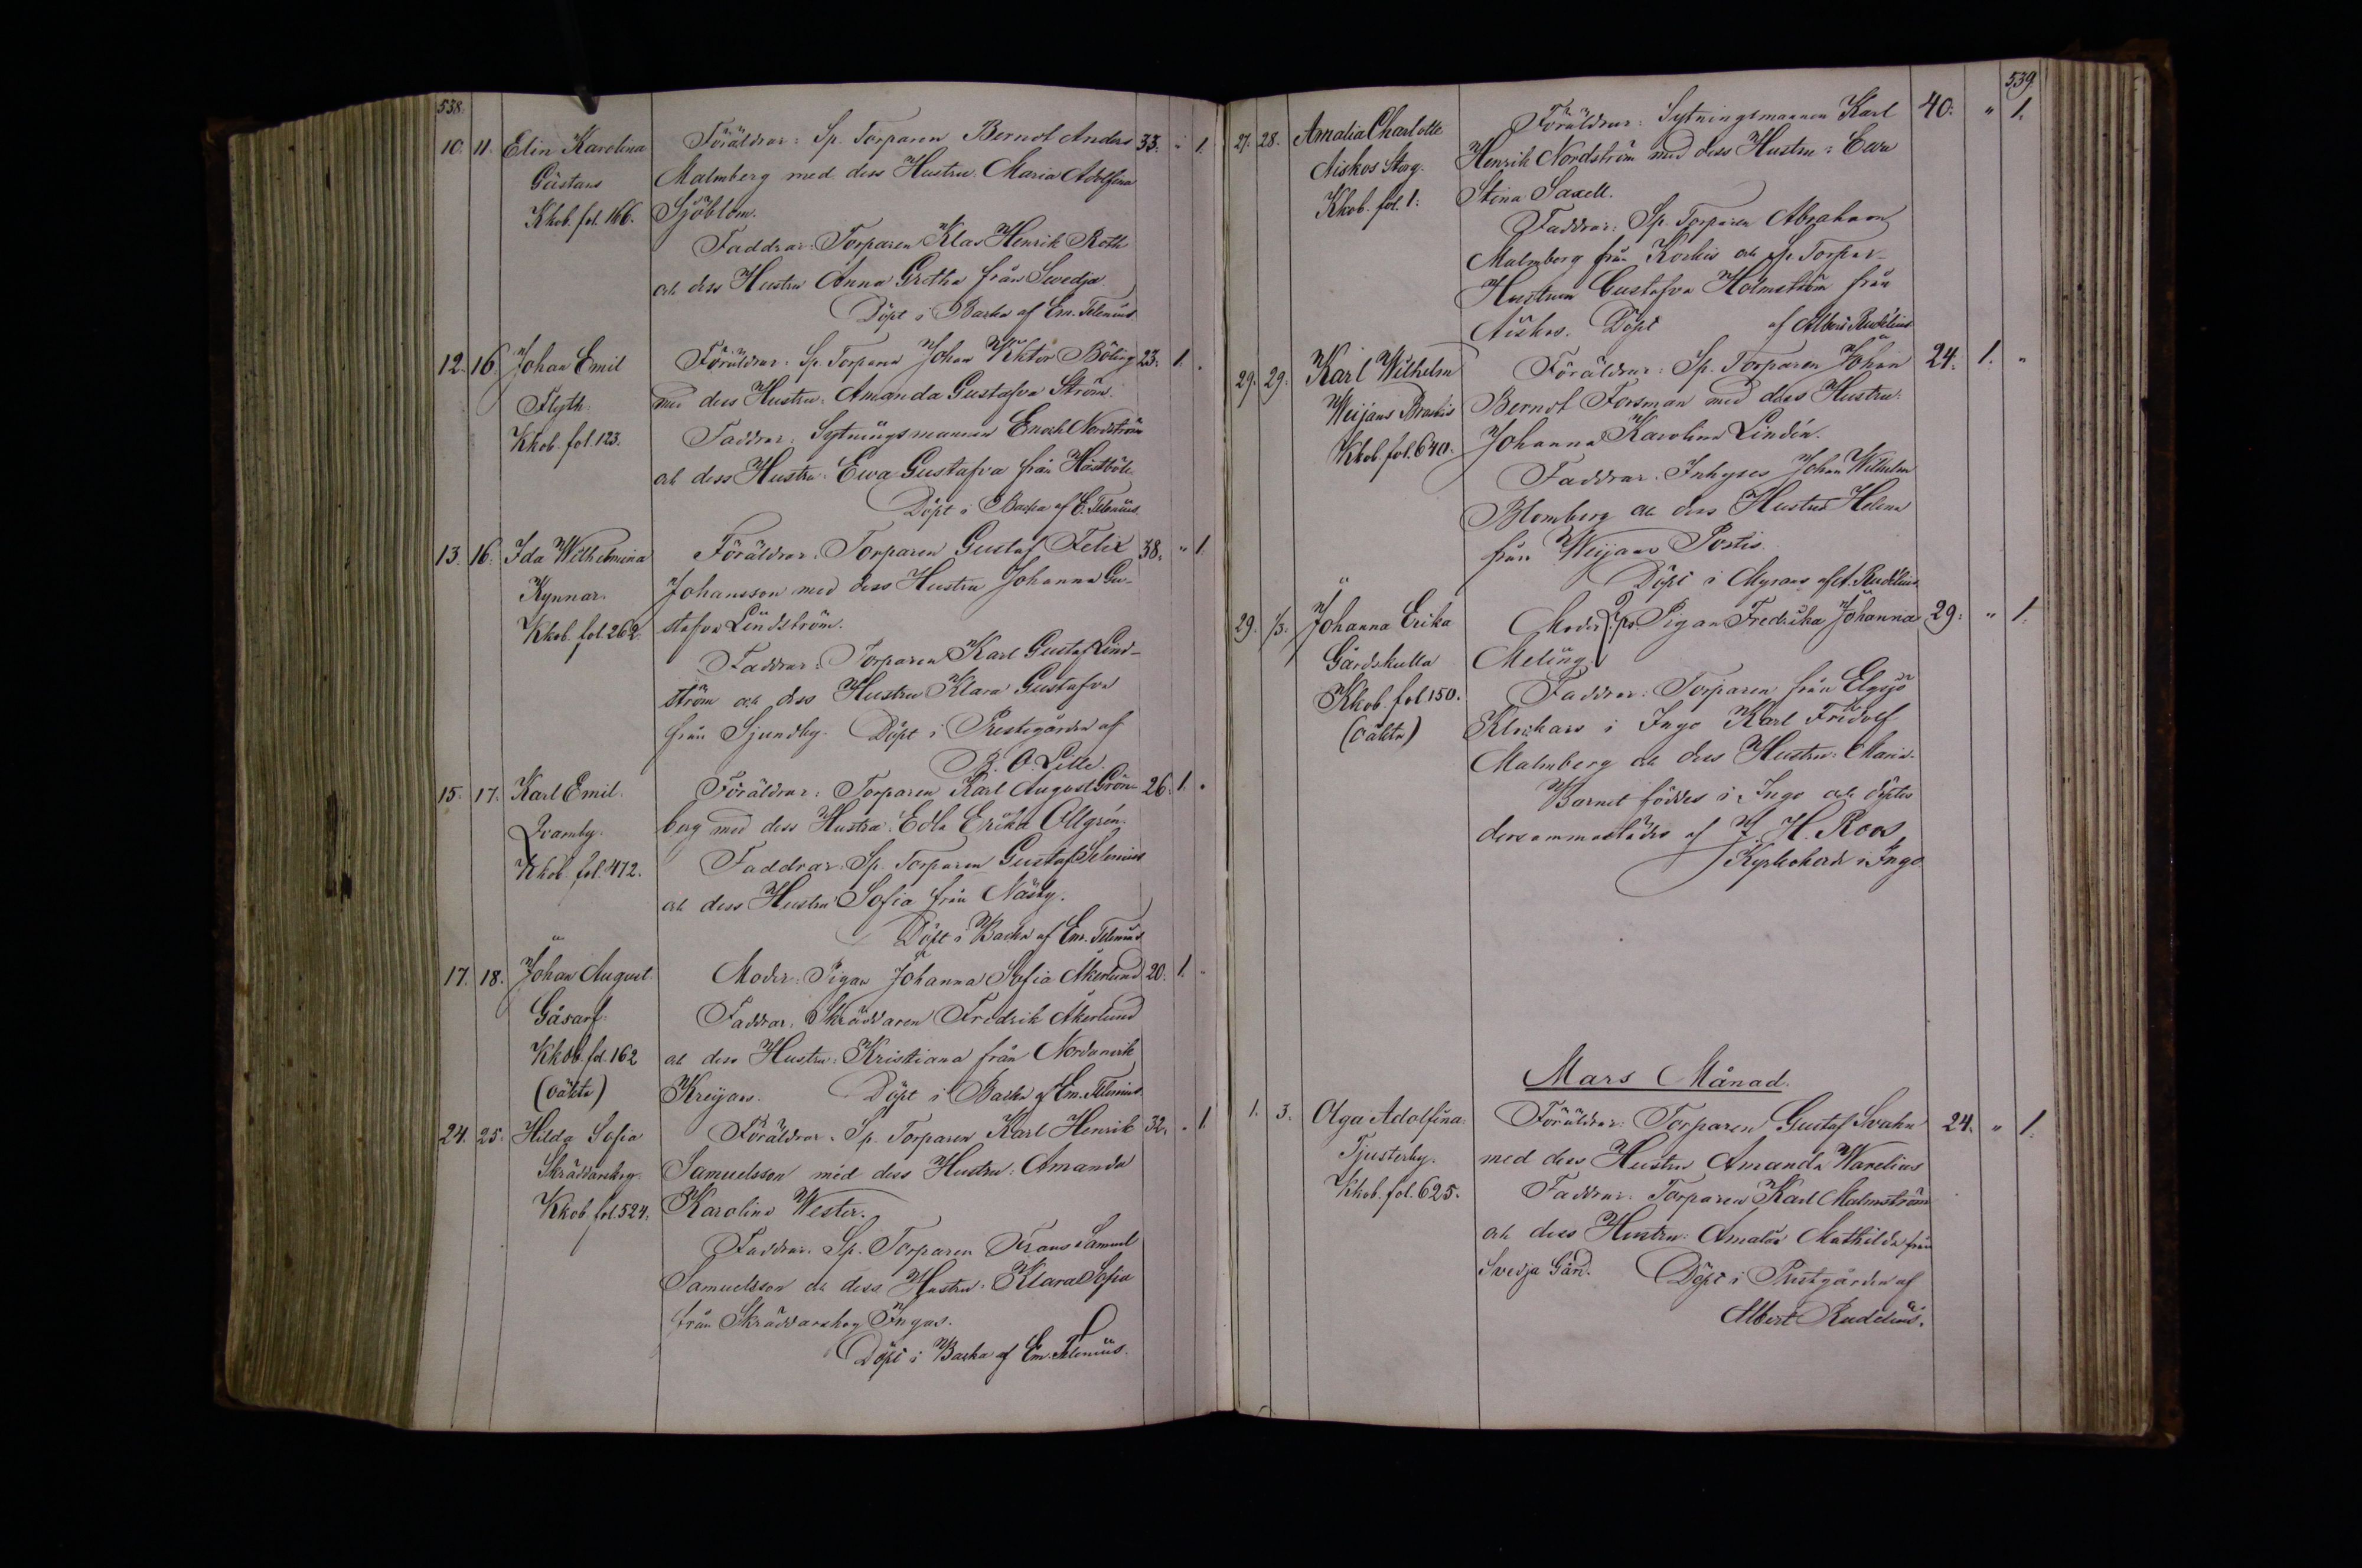 538.
10. 11. Elin Karolina Föräldrar: Sp. Torparen Berndt Anders 33. " 1.
Gästans Malmberg med dess Hustru: Maria Adolfina
Kkob. fol. 166. Sjöblom.
Faddrar: Torparen Klas Henrik Roth
och dess Hustru Anna Gretha från Svedja
Döpt i Backa af Em. Telenius.
12. 16. Johan Emil Föräldrar: Sp. Torparen Johan Viktor Böling 23. 1. "
Flyth. med dess Hustru: Amanda Gustafva Ström.
Kkob. fol. 123. Faddrar: Sytningsmannen Enoch Nordström
och dess Hustru: Ewa Gustafva från Hästböle
Döpt i Backa af E. Telenius.
13. 16. Ida Wilhelmina Föräldrar: Torparen Gustaf Felix 38. " 1.
Kynnar. Johansson med dess Hustru Johanna Gu-
Kkob. fol. 262. stafva Lindström.
Faddrar: Torparen Karl Gustaf Lind-
ström och dess Hustru Klara Gustafva
från Sjundby. Döpt i Prestgården af
B. O. Lille.
15. 17. Karl Emil. Föräldrar: Torparen Karl August Grön- 26. 1. "
Qvarnby. berg med dess Hustru: Edla Erika Ollgrén.
Kkob. fol. 472. Faddrar: Sp. Torparen Gustaf Selenius
och dess Hustru Sofia från Näsby.
Döpt i Backa af Em. Telenius
17. 18. Johan August Moder: Pigan Johanna Sofia Åkerlund 20. 1. "
Gåsarf. Faddrar: Skräddaren Fredrik Åkerlund
Kkob. fol. 162 och dess Hustru: Kristiana från Nordanvik
(oäkta) Kreijars. Döpt i Backa af Em. Telenius
24. 25. Hilda Sofia Föräldrar: Sp. Torparen Karl Henrik 32. " 1
Skräddarskog. Samuelsson med dess Hustru: Amanda
Kkob. fol. 524. Karolina Wester.
Faddrar: Sp. Torparen Frans Samuel
Samuelsson och dess Hustru: Klara Sofia
från Skräddarskog Ingas.
Döpt i Backa af Em. Telenius.
539
27. 28. Amalia Charlotte Föräldrar: Sytningsmannen Karl 40. " 1.
Aiskos Storg. Henrik Nordström med dess Hustru: Ewa
Kkob. fol. 1. Stina Saxell.
Faddrar: Sp. Torparen Abraham
Malmberg från Korkis och Sp. Torpar-
Hustrun Gustafva Holmström från
Aiskos. Döpt af Albert Rudelius
29. 29. Karl Wilhelm Föräldrar: Sp. Torparen Johan 24. 1. "
Weijans Berndt Forsman med dess Hustru:
Kkob. fol. 640. Johanna Karolina Lindén.
Faddrar: Inhyses Johan Wilhelm
Blomberg och dess Hustru Helena
från Weijans Postis.
Döpt i Myrans af A. Rudelius
29. 1/3. Johanna Erika Moder: Sp. Pigan Fredrika Johanna 29. " 1.
Gårdskulla Meling.
Kkob. fol 150. Faddrar: Torparen från Elgsjö
(oäkta) Klockars i Ingo Karl Fridolf
Malmberg och dess Hustru: Maria.
Barnet föddes i Ingo och döptes
dersammastädes af J. H. Roos,
Kyrkoherde i Ingo
Mars Månad.
1. 3. Olga Adolfina. Föräldrar: Torparen Gustaf Svahn 24. " 1.
Tjusterby. med dess Hustru Amanda Warelius
Kkob. fol. 625. Faddrar: Torparen Karl Malmström
och dess Hustru: Amalia Mathilda från
Svedja Gård. Döpt i Prestgården af
Albert Rudelius.